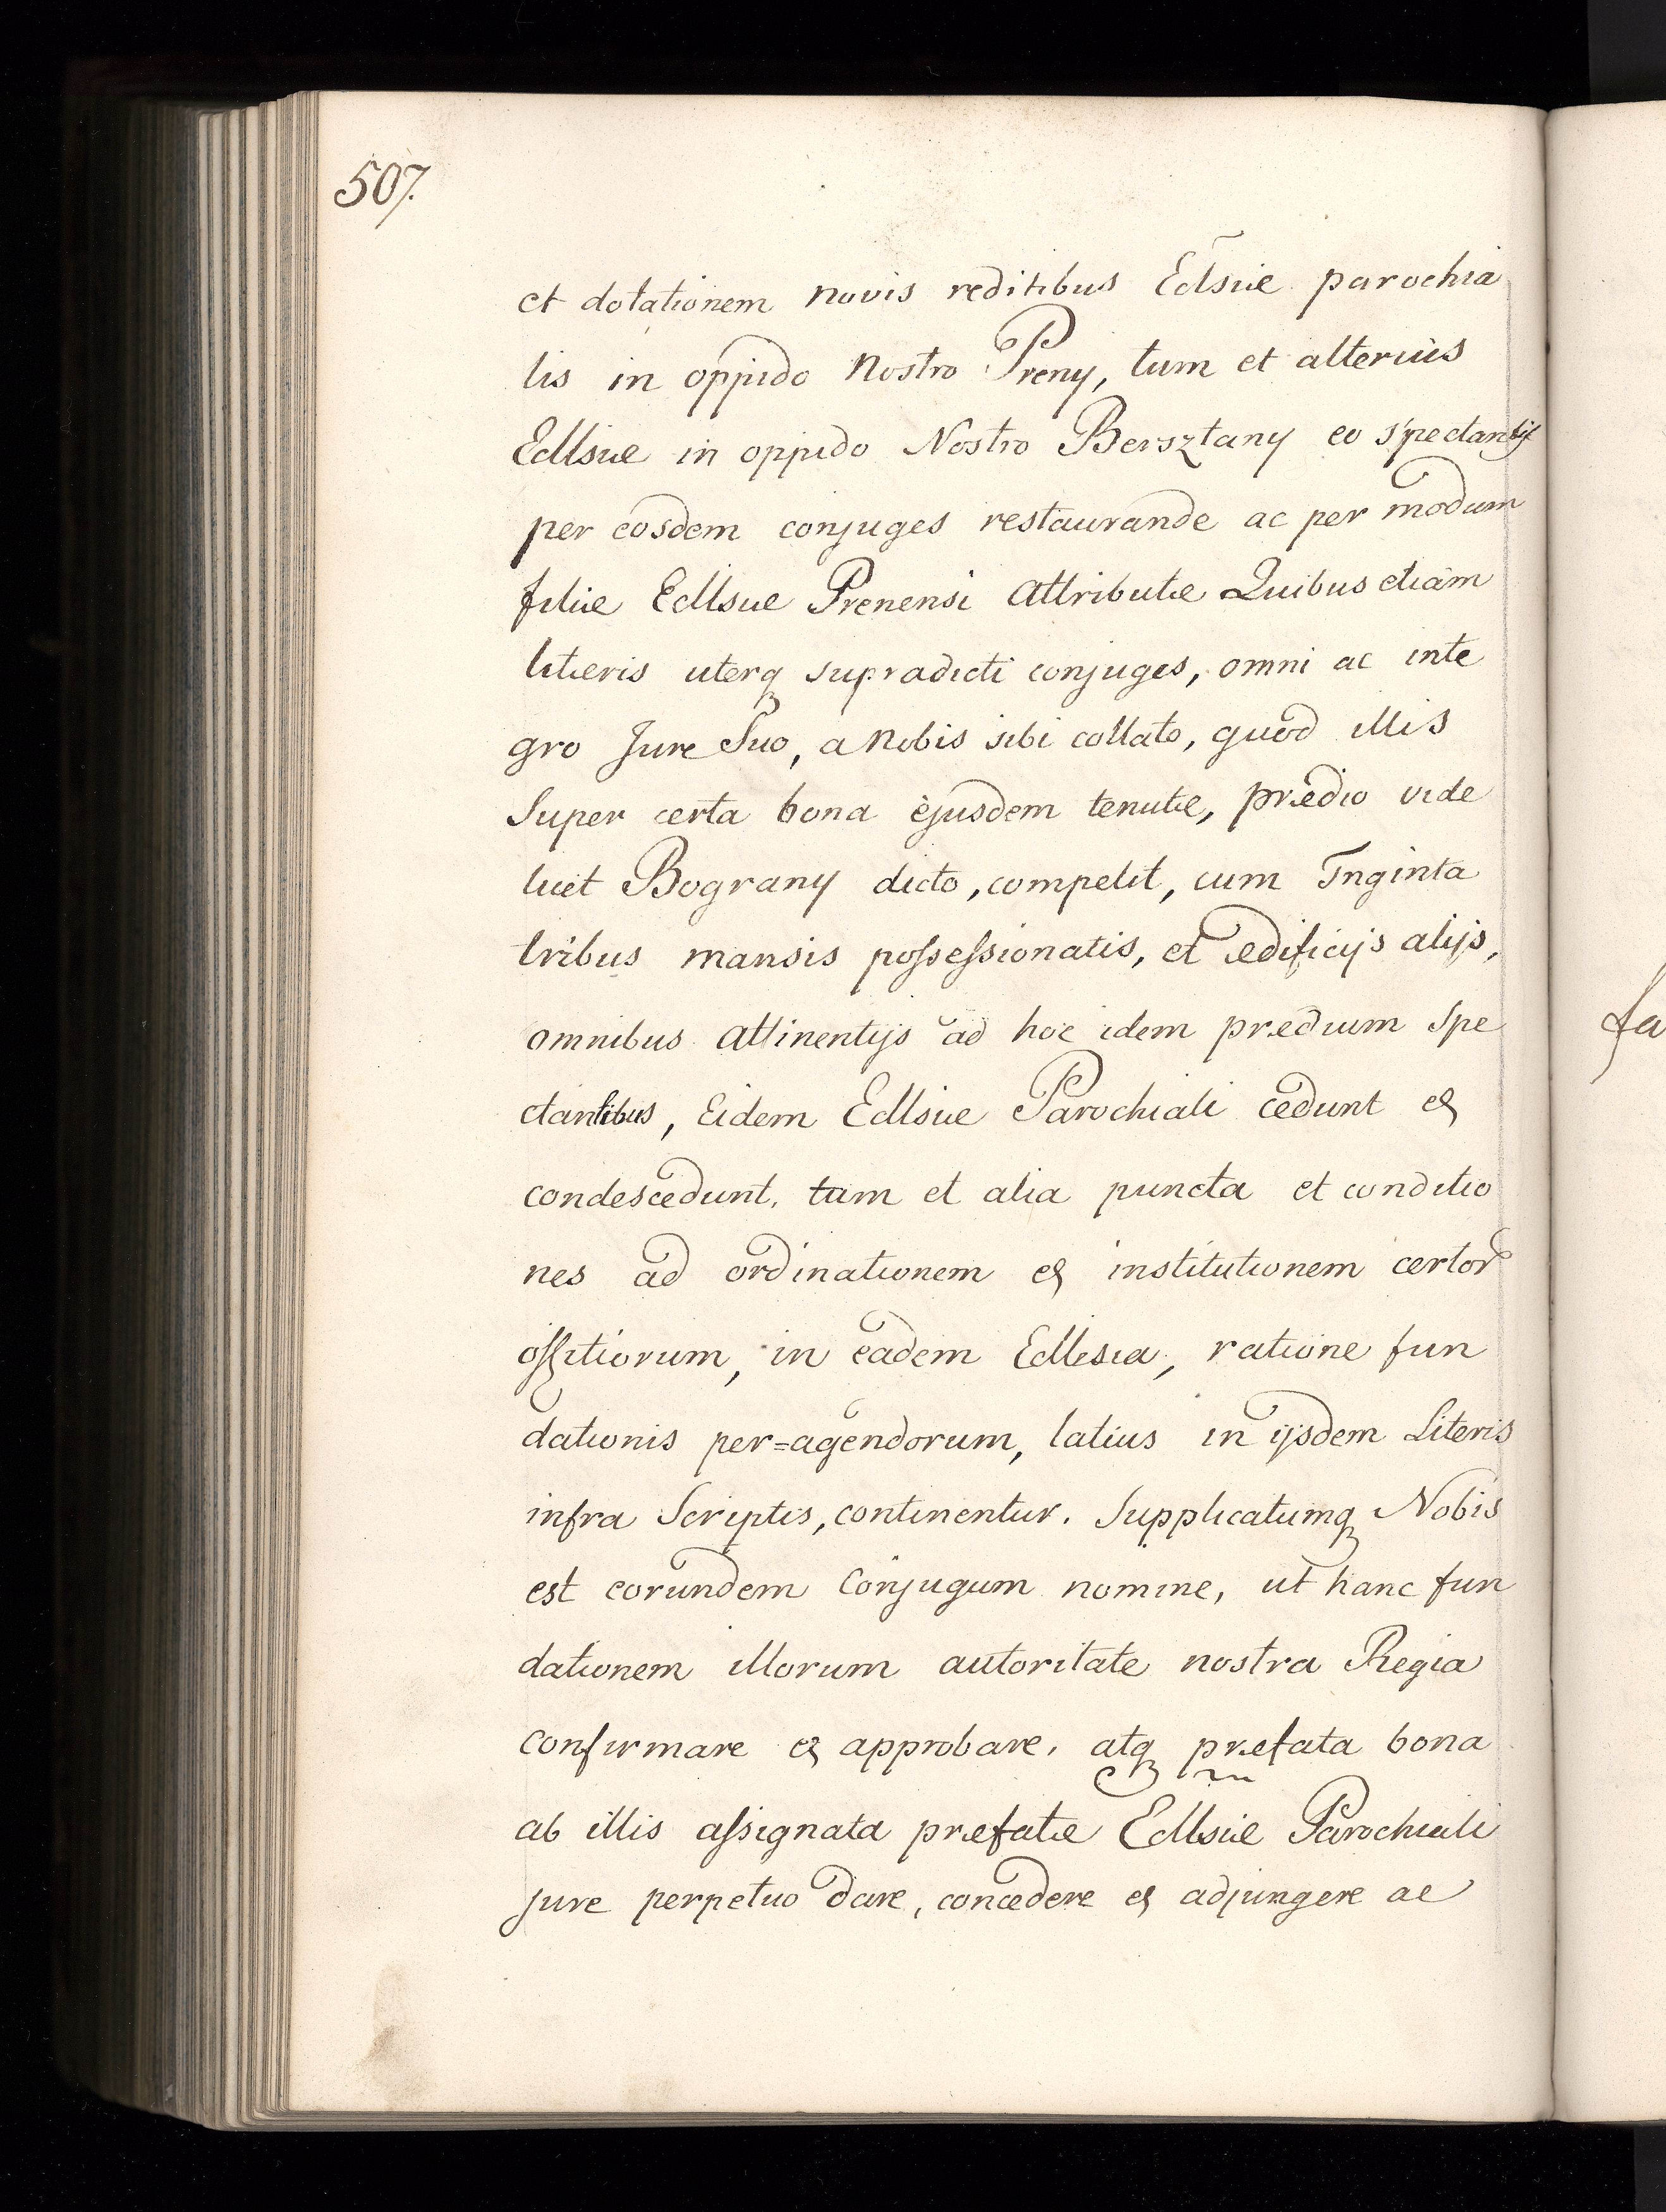 507.
et dotationem novis reditibus Eclsiæ parochia
lis in oppido Nostro Preny, tum et alterius
Ecllsiæ in oppido Nostro Bersztany eo spectantis
per eosdem conjuges restaurandæ ac per modum
filiæ Ecllsiæ Prenensi attributæ Quibus etiam
litæris uterq supradicti conjuges, omni ac inte
gro Jure Suo, a Nobis sibi collato, quod illis
Super certa bona ejusdem tenutæ, prædio vide
licet Bograny dicto, competit, cum Triginta
tribus mansis possessionatis, et ædificijs alijs,
omnibus attinentijs ad hoc idem prædium spe
ctantibus, Eidem Ecllsiæ Parochiali cedunt et
condescedunt, tum et alia puncta et conditio
nes ad ordinationem et institutionem certor
offitiorum, in eadem Ecllesia, ratione fun
dationis per=agendorum, latius in ijsdem Literis
infra Scriptis, continentur. Supplicatumq Nobis
est eorundem Conjugum nomine, ut hanc fun
dationem illorum autoritate nostra Regia
confirmare et approbare, atq præfata bona
ab illis assignata præfatæ Ecllsiæ Parochiali
jure perpetuo dare, concedere et adjungere ac
fa